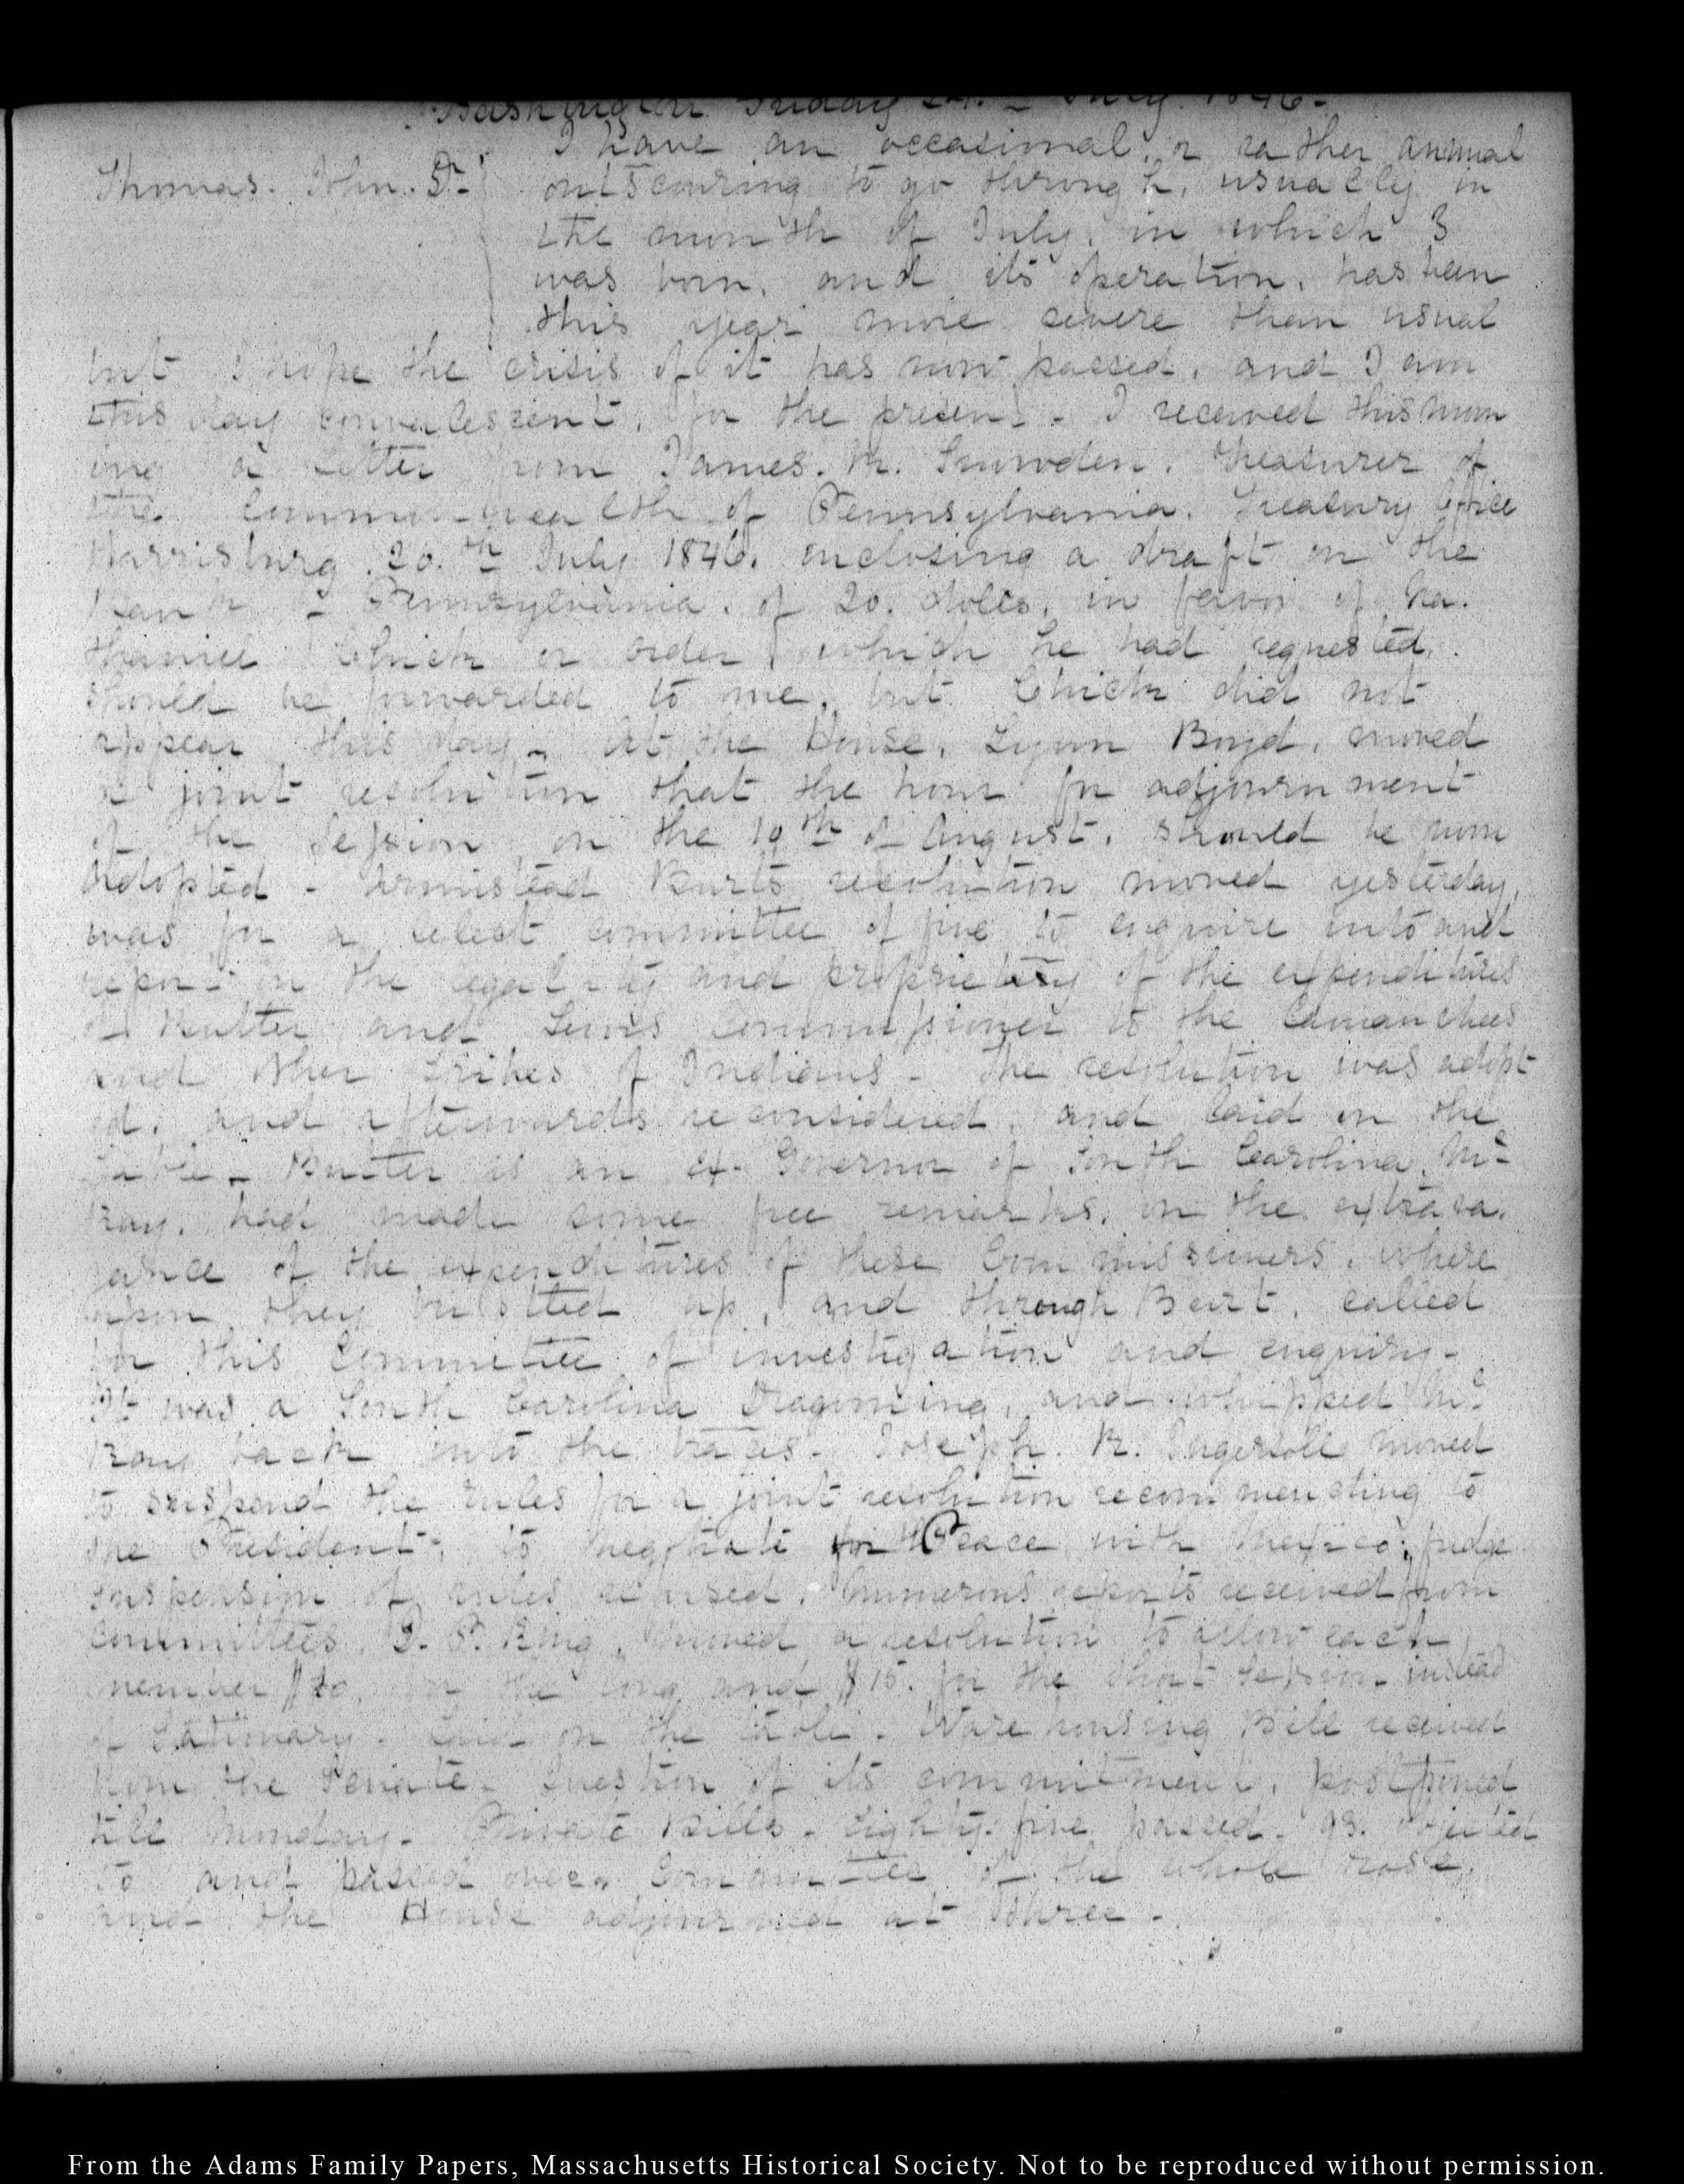 Washington Friday 24. July 1846.
Thomas. John. D.
I have an occasional, or rather annual
outscouring to go through, usually in
the month of July, in which I
was born, and its operation, has been
this year more severe than usual
but I hope the crisis of it has now passed, and I am
this day convalescent, for the present. I received this morn
ing a Letter from James. R. Snowden. Treasurer of
the Commonwealth of Pennsylvania. Treasury Office
Harrisburg 20.th July 1846. enclosing a draft on the
Bank Pennsylvania. of 20. dolls, in favor of Na.
thaniel Chick or order which he had requested.
should be forwarded to me, but Chick did not
appear this day. At the House, Lynn Boyd, moved
a joint resolution that the hour for adjournment
of the Session on the 10th of August. should be now
adopted. Armistead Burt's resolution moved yesterday,
was for a select committee of five to enquire into and
report on the legality and propriety of the expenditures
of Butler and Lewis Commissioner to the Comanchees
and other tribes of Indians. The resolution was adopt
ed. and afterwards reconsidered, and laid on the
table. Butler is an ex-Governor of South Carolina. Mc
Kay, had made some free remarks, on the extrava.
gance of the expenditures of these Commissioners, where
upon they bristled up, and through Burt, called
for this Committee of investigation and enquiry.
It was a South Carolina Dragooning, and whipped Mc
Kay back into the traces. Joseph. R. Ingersoll moved
to suspend the rules for a joint resolution recommending to
the President, to negotiate for Peace with Mexico.
suspension of rules refused. Numerous reports received from
Committees. D. P. King, moved a resolution to allow each
member $20. for the long and $15. for the short Session instead
of Stationary. Laid on the table. Ware housing Bill received
from the Senate. Question of its commitment, postponed
till Monday. Private Bills. Eighty-five passed. 93. objected
to and passed over. Committee of the whole rose,
and the House adjourned at three.
From the Adams Family Papers, Massachusetts Historical Society. Not to be reproduced without permission.